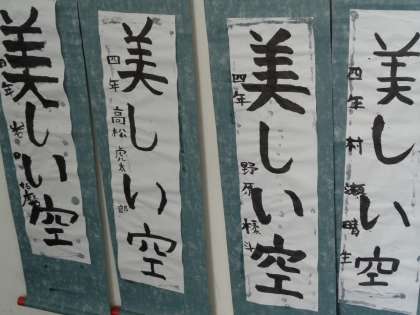 美しい空
四年
美しい空
四年 高松 虎太郎
美しい空
四年 野原 

美しい空
四年 村瀬 晴生